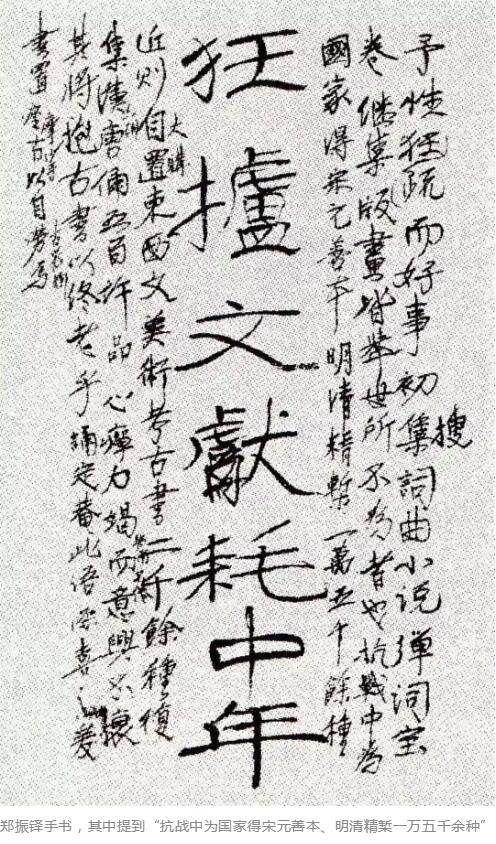 予性狂疏而好事初搜集詞曲小说弹词宝
卷继集版畫皆举世所不为者也抗戰中为
國家得宋元善本明清精槧一萬五千餘種
狂攎文獻耗中年
近则大購自置東西文美術考古書二千餘種復
集漢唐俑五百許品心瘁力竭而意興不衰
其將抱古書以终老乎誦定菴此语深喜之爰
書置座右以自勞焉
郑振铎手书，其中提到“抗战中为国家得宋元善本、明清精椠一万五千余种”